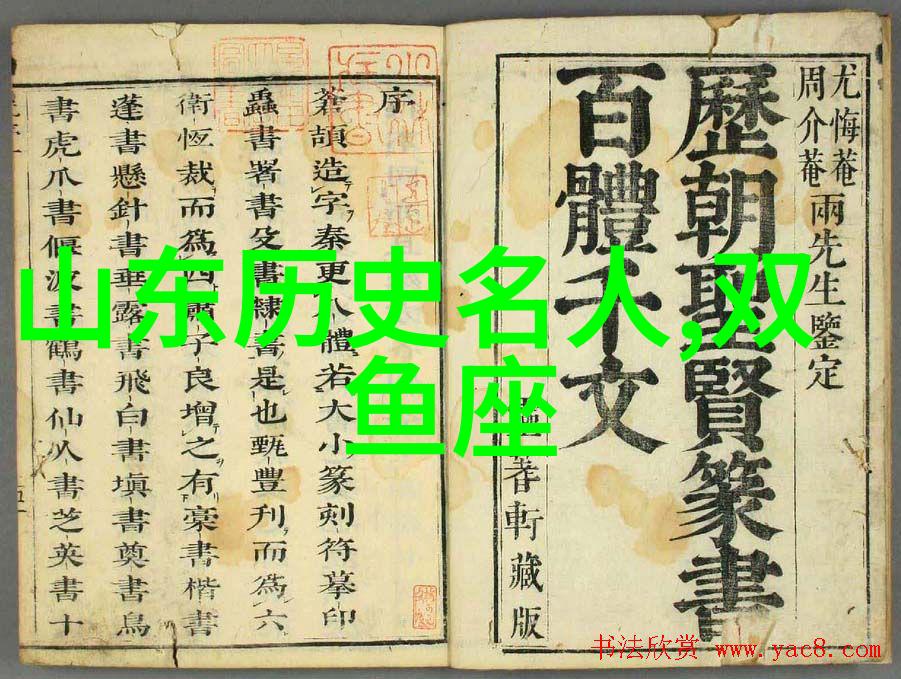 山东历史名人,双
鱼座
尤悔菴
周介菴
兩先生鑒定
歷朝聖賢篆書
百體千文
蓍軒藏版
序
蒼頡造字秦更八體若大小篆刻符摹印
蟲書署書殳書隸書是也甄豐刋而為六
衛恆裁而為四蕭子良增之有藁書楷書
蓬書懸針書垂露書飛白書塡書奠書鳥
書虎爪書偃波書鶴書仙人書芝英書十
书法欣赏 www.yac8.com